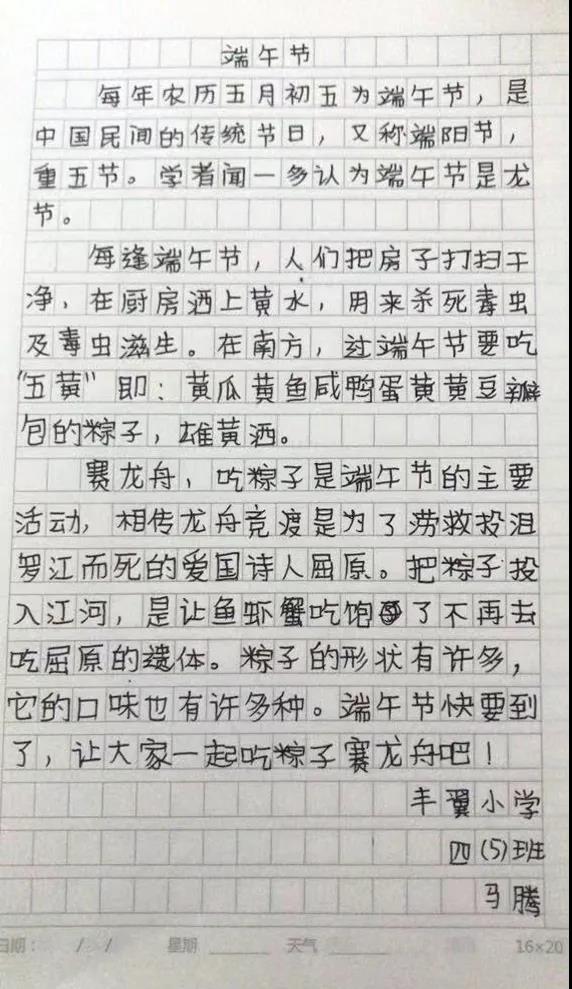 端午节
每年农历五月初五为端午节，是
中国民间的传统节日，又称端阳节，
重五节。学者闻一多认为端午节是龙
节。
每逢端午节，人们把房子打扫干
净，在厨房洒上黄水，用来杀死毒虫
及毒虫滋生。在南方，过端午节要吃
“五黄”即：黄瓜黄鱼咸鸭蛋黄黄豆瓣
包的粽子，雄黄洒。
赛龙舟，吃粽子是端午节的主要
活动，相传龙舟竞渡是为了涝救投沮
罗江而死的爱国诗人屈原。把粽子投
入江河，是让鱼虾蟹吃饱了不再去
吃屈原的遗体。粽子的形状有许多，
它的口味也有许多种。端午节快要到
了，让大家一起吃粽子赛龙舟吧！
丰翼小学
四(5)班
马腾
日期： / /  星期  天气  16×20